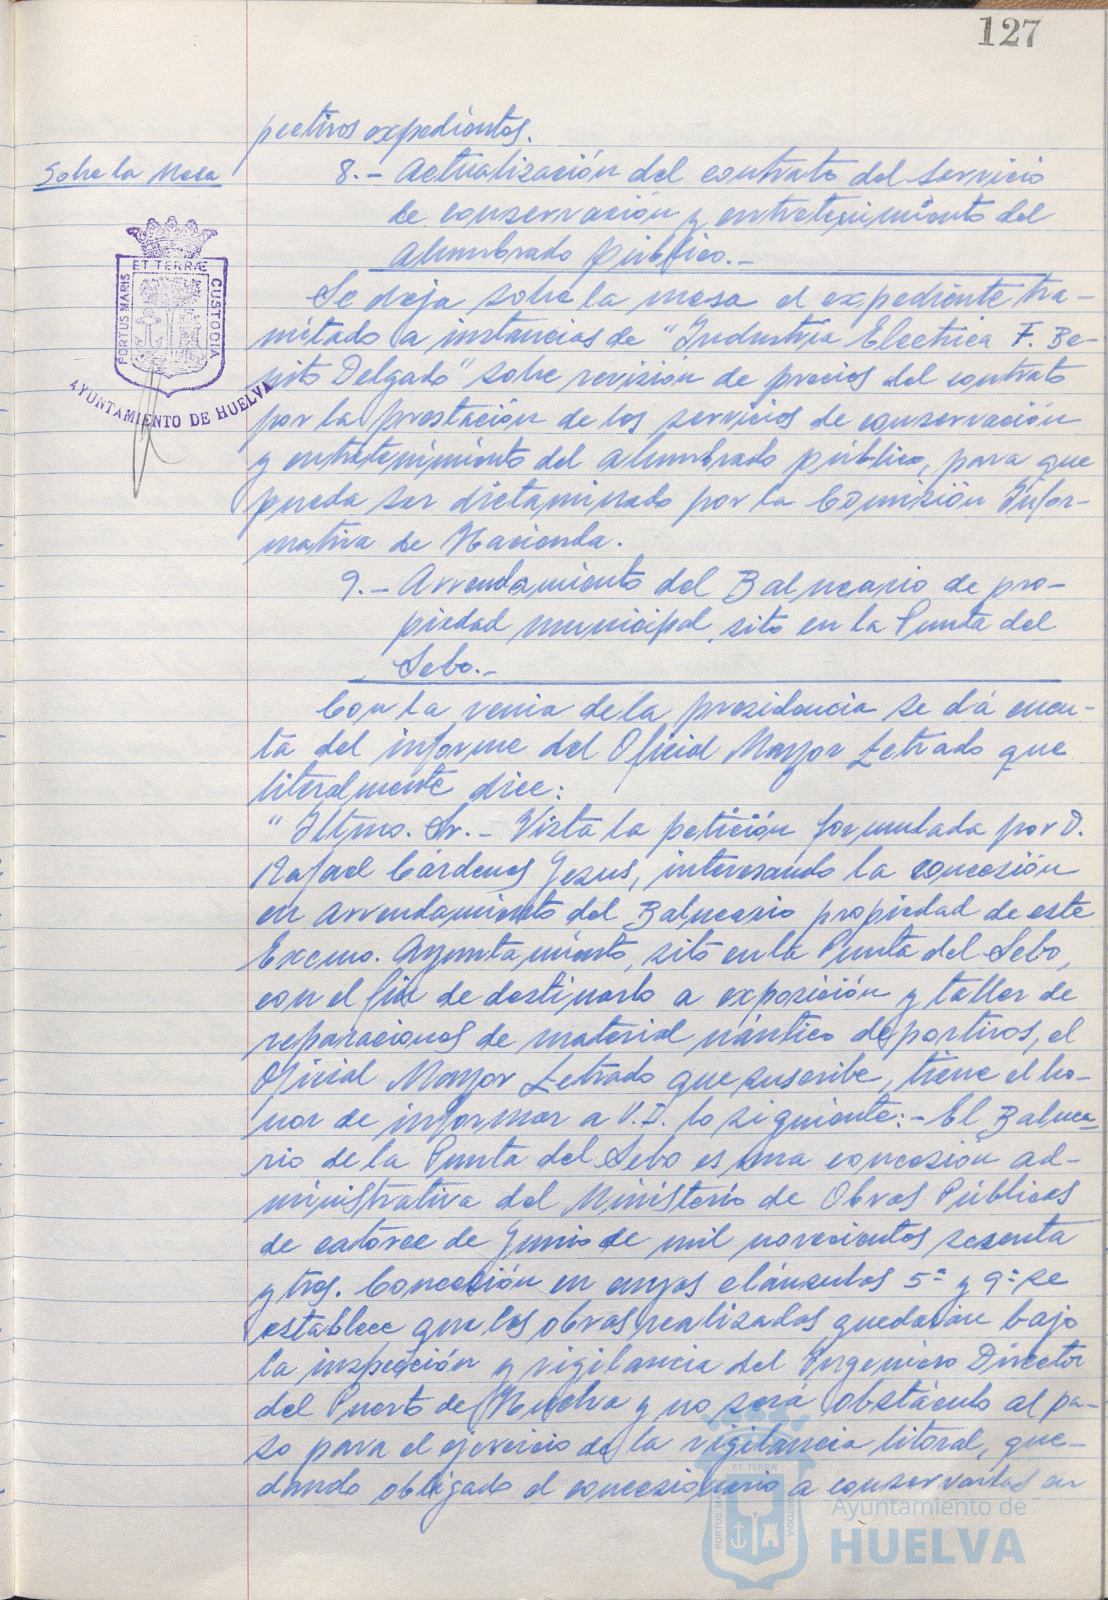 127
pectivos expedientes.
Sobre la Mesa
8.- Actualización del contrato del Servicio
de conservación y entretenimiento del
Alumbrado público.-
Se deja sobre la mesa el expediente tra-
mitado a instancias de "Industria Electrica F. Be-
nito Delgado" sobre revisión de precios del contrato
por la prestación de los servicios de conservación
y entretenimiento del alumbrado público, para que
pueda ser dictaminado por la Comisión Infor-
mativa de Hacienda.
9.- Arrendamiento del Balneario de pro-
piedad municipal, sito en la Punta del
Sebo.-
Con la venia de la presidencia se dá cuen-
ta del informe del Oficial Mayor Letrado que
literalmente dice:
"Iltmo. Sr.- Vista la petición formulada por D.
Rafael Cárdenas Jesus, interesando la concesión
en arrendamiento del Balneario propiedad de este
Excmo. Ayuntamiento, sito en la Punta del Sebo,
con el fin de destinarlo a exposición y taller de
reparaciones de material náutico deportivos, el
Oficial Mayor Letrado que suscribe, tiene el ho-
nor de informar a V.I. lo siguiente:- El Balnea-
rio de la Punta del Sebo es una concesión ad-
ministrativa del Ministerio de Obras Públicas
de catorce de Junio de mil novecientos sesenta
y tres. Concesión en cuyas cláusulas 5ª y 9ª se
establece que las obras realizadas quedarán bajo
la inspección y vigilancia del Ingeniero Director
del Puerto de Huelva y no será obstáculo al pa-
so para el ejercicio de la vigilancia litoral, que-
dando obligado el concesionario a conservarlas en
ET TERRÆ
PORTUS MARIS
CUSTODIA
AYUNTAMIENTO DE HUELVA
ET TERRÆ
PORTUS MARIS
CUSTODIA
Ayuntamiento de
HUELVA